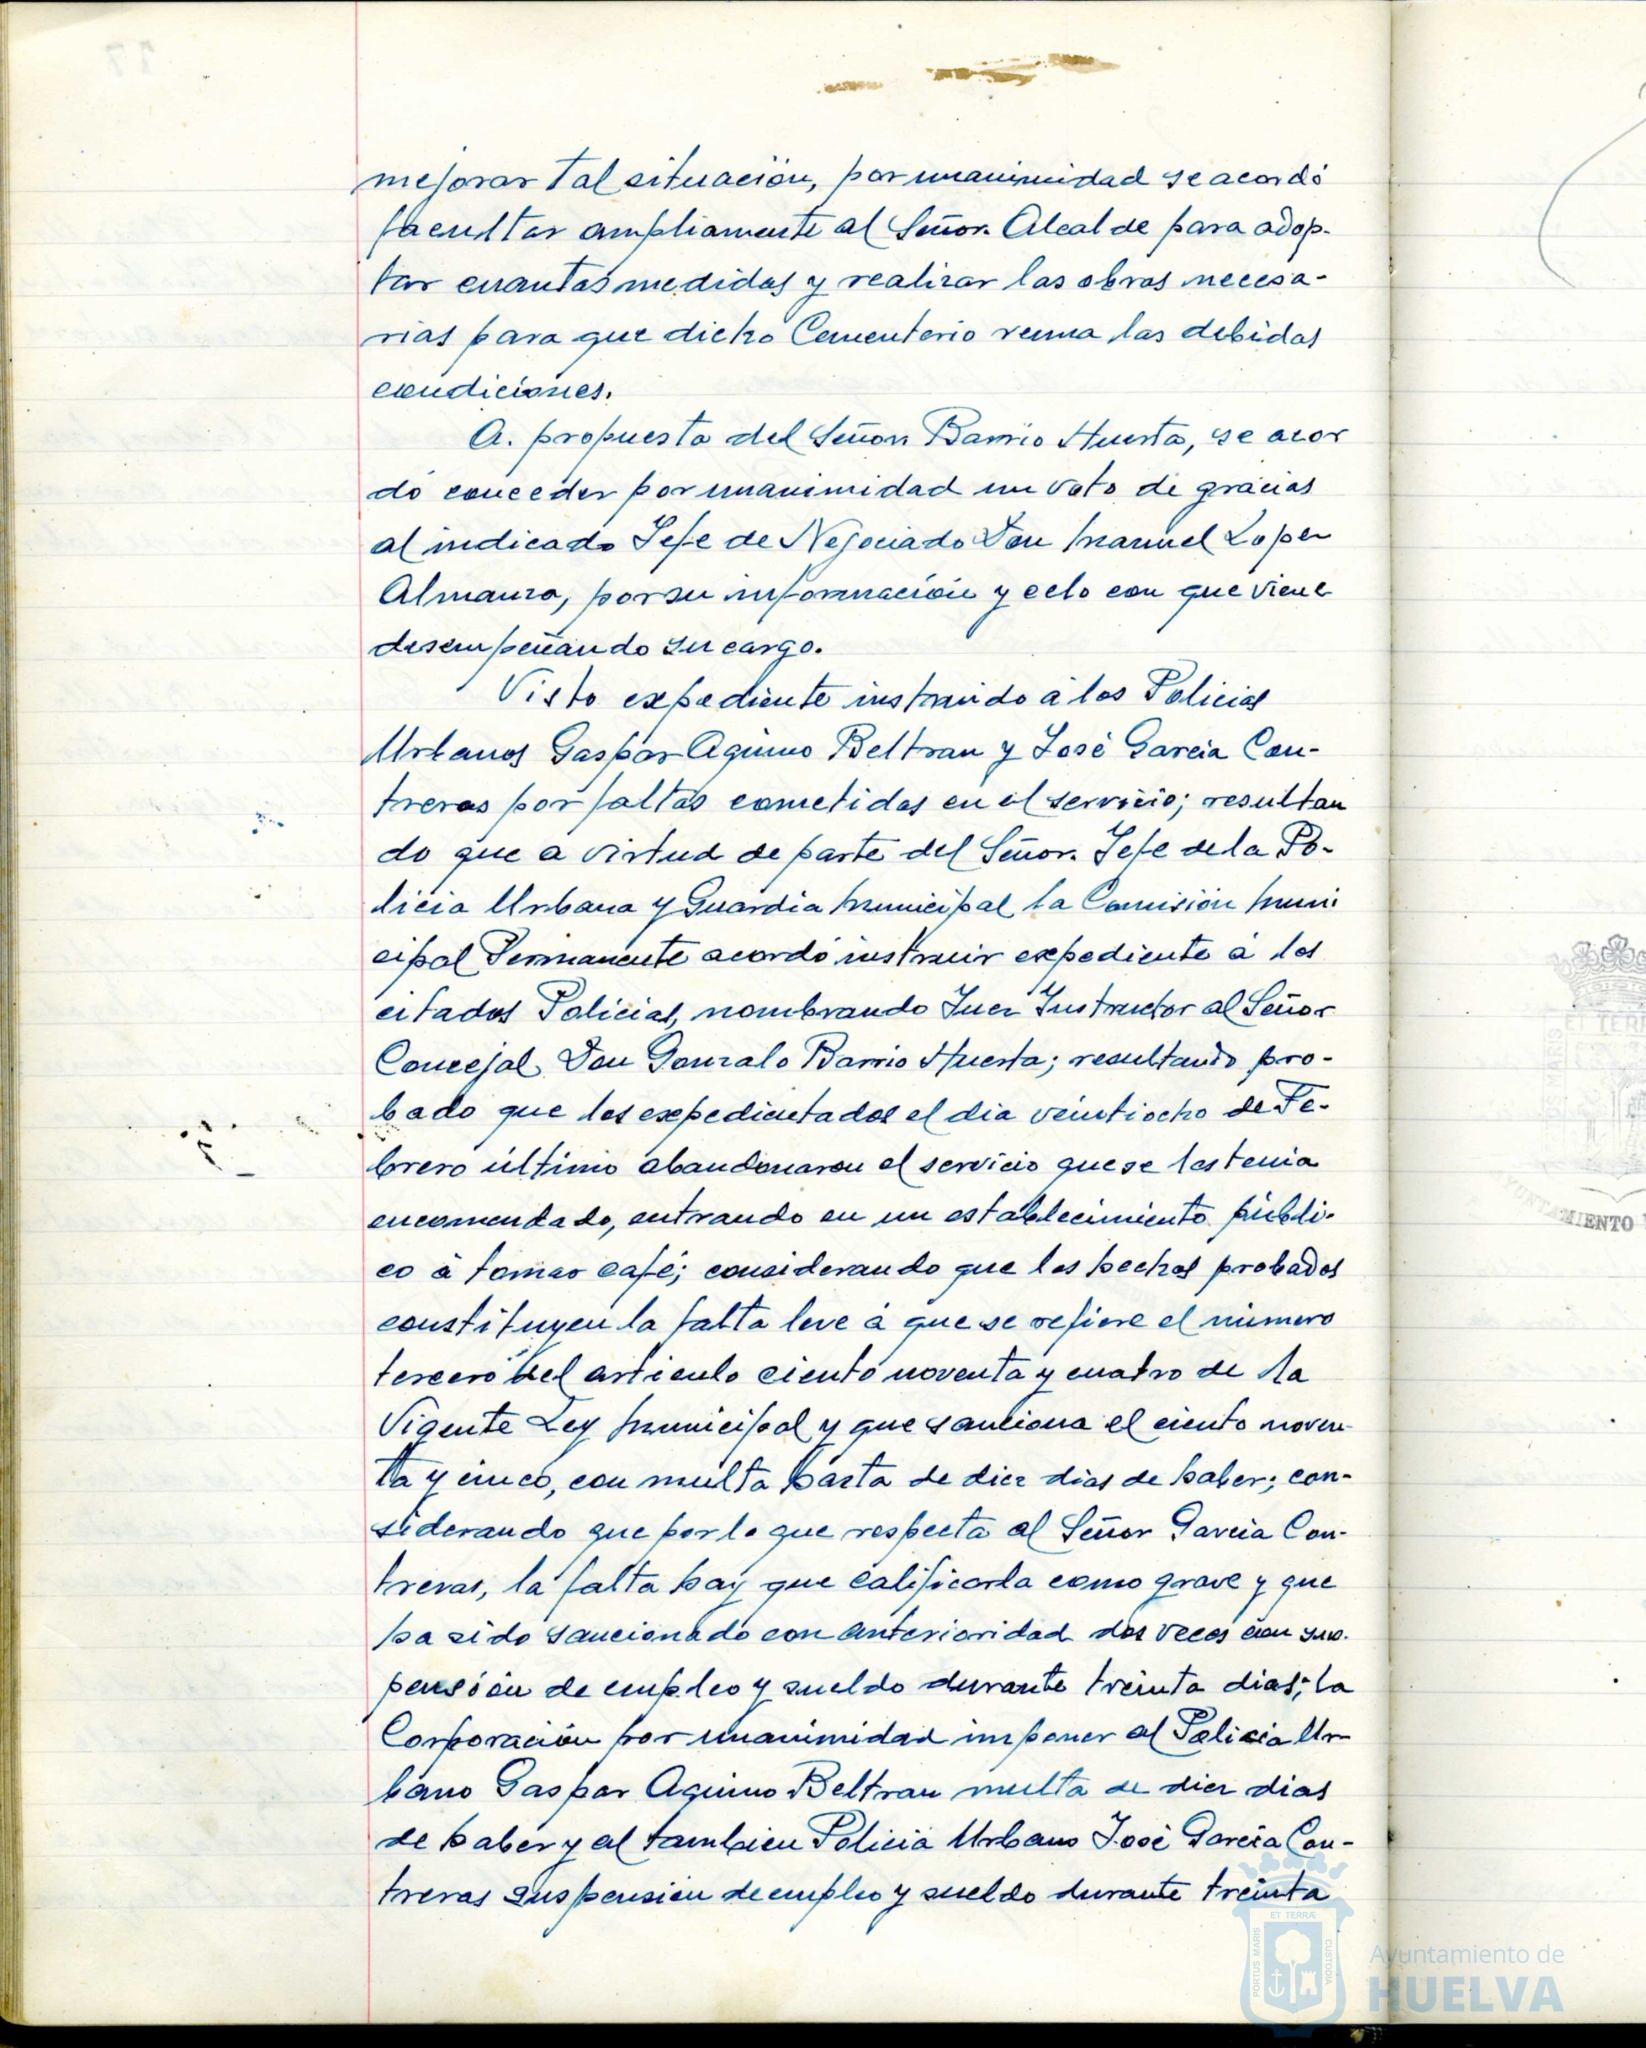 mejorar tal situación, por unanimidad se acordó
facultar ampliamente al Señor. Alcalde para adop-
tar cuantas medidas y realizar las obras necesa-
rias para que dicho Cementerio reuna las debidas
condiciones.
A. propuesta del Señor Barrio Huerta, se acor
dó conceder por unanimidad un voto de gracias
al indicado Jefe de Negociado Don Manuel Lopez
Almanza, por su información y celo con que viene
desempeñando su cargo.
Visto expediente instruido á los Policias
Urbanos Gaspar Aquino Beltran y José Garcia Con-
treras por faltas cometidas en el servicio; resultan
do que a virtud de parte del Señor. Jefe de la Po-
licia Urbana y Guardia Municipal la Comisión Muni
cipal Permanente acordó instruir expediente á los
citados Policias, nombrando Juez Instructor al Señor
Concejal Don Gonzalo Barrio Huerta; resultando pro-
bado que los expedientados el dia veintiocho de Fe-
brero último abandonaron el servicio que se les tenia
encomendado, entrando en un establecimiento públi-
co á tomar café; considerando que los hechos probados
constituyen la falta leve á que se refiere el número
tercero del articulo ciento noventa y cuatro de la
Vigente Ley Municipal y que sanciona el ciento noven-
ta y cinco, con multa hasta de diez dias de haber; con-
siderando que por lo que respecta al Señor Garcia Con-
treras, la falta hay que calificarla como grave y que
ha sido sancionado con anterioridad dos veces con sus-
pensión de empleo y sueldo durante treinta dias; la
Corporación por unanimidad imponer al Policia Ur-
bano Gaspar Aquino Beltran multa de diez dias
de haber y al tambien Policia Urbano José Garcia Con-
treras suspensión de empleo y sueldo durante treinta
ET TERRÆ
PORTUS MARIS
CUSTODIA
Ayuntamiento de
HUELVA